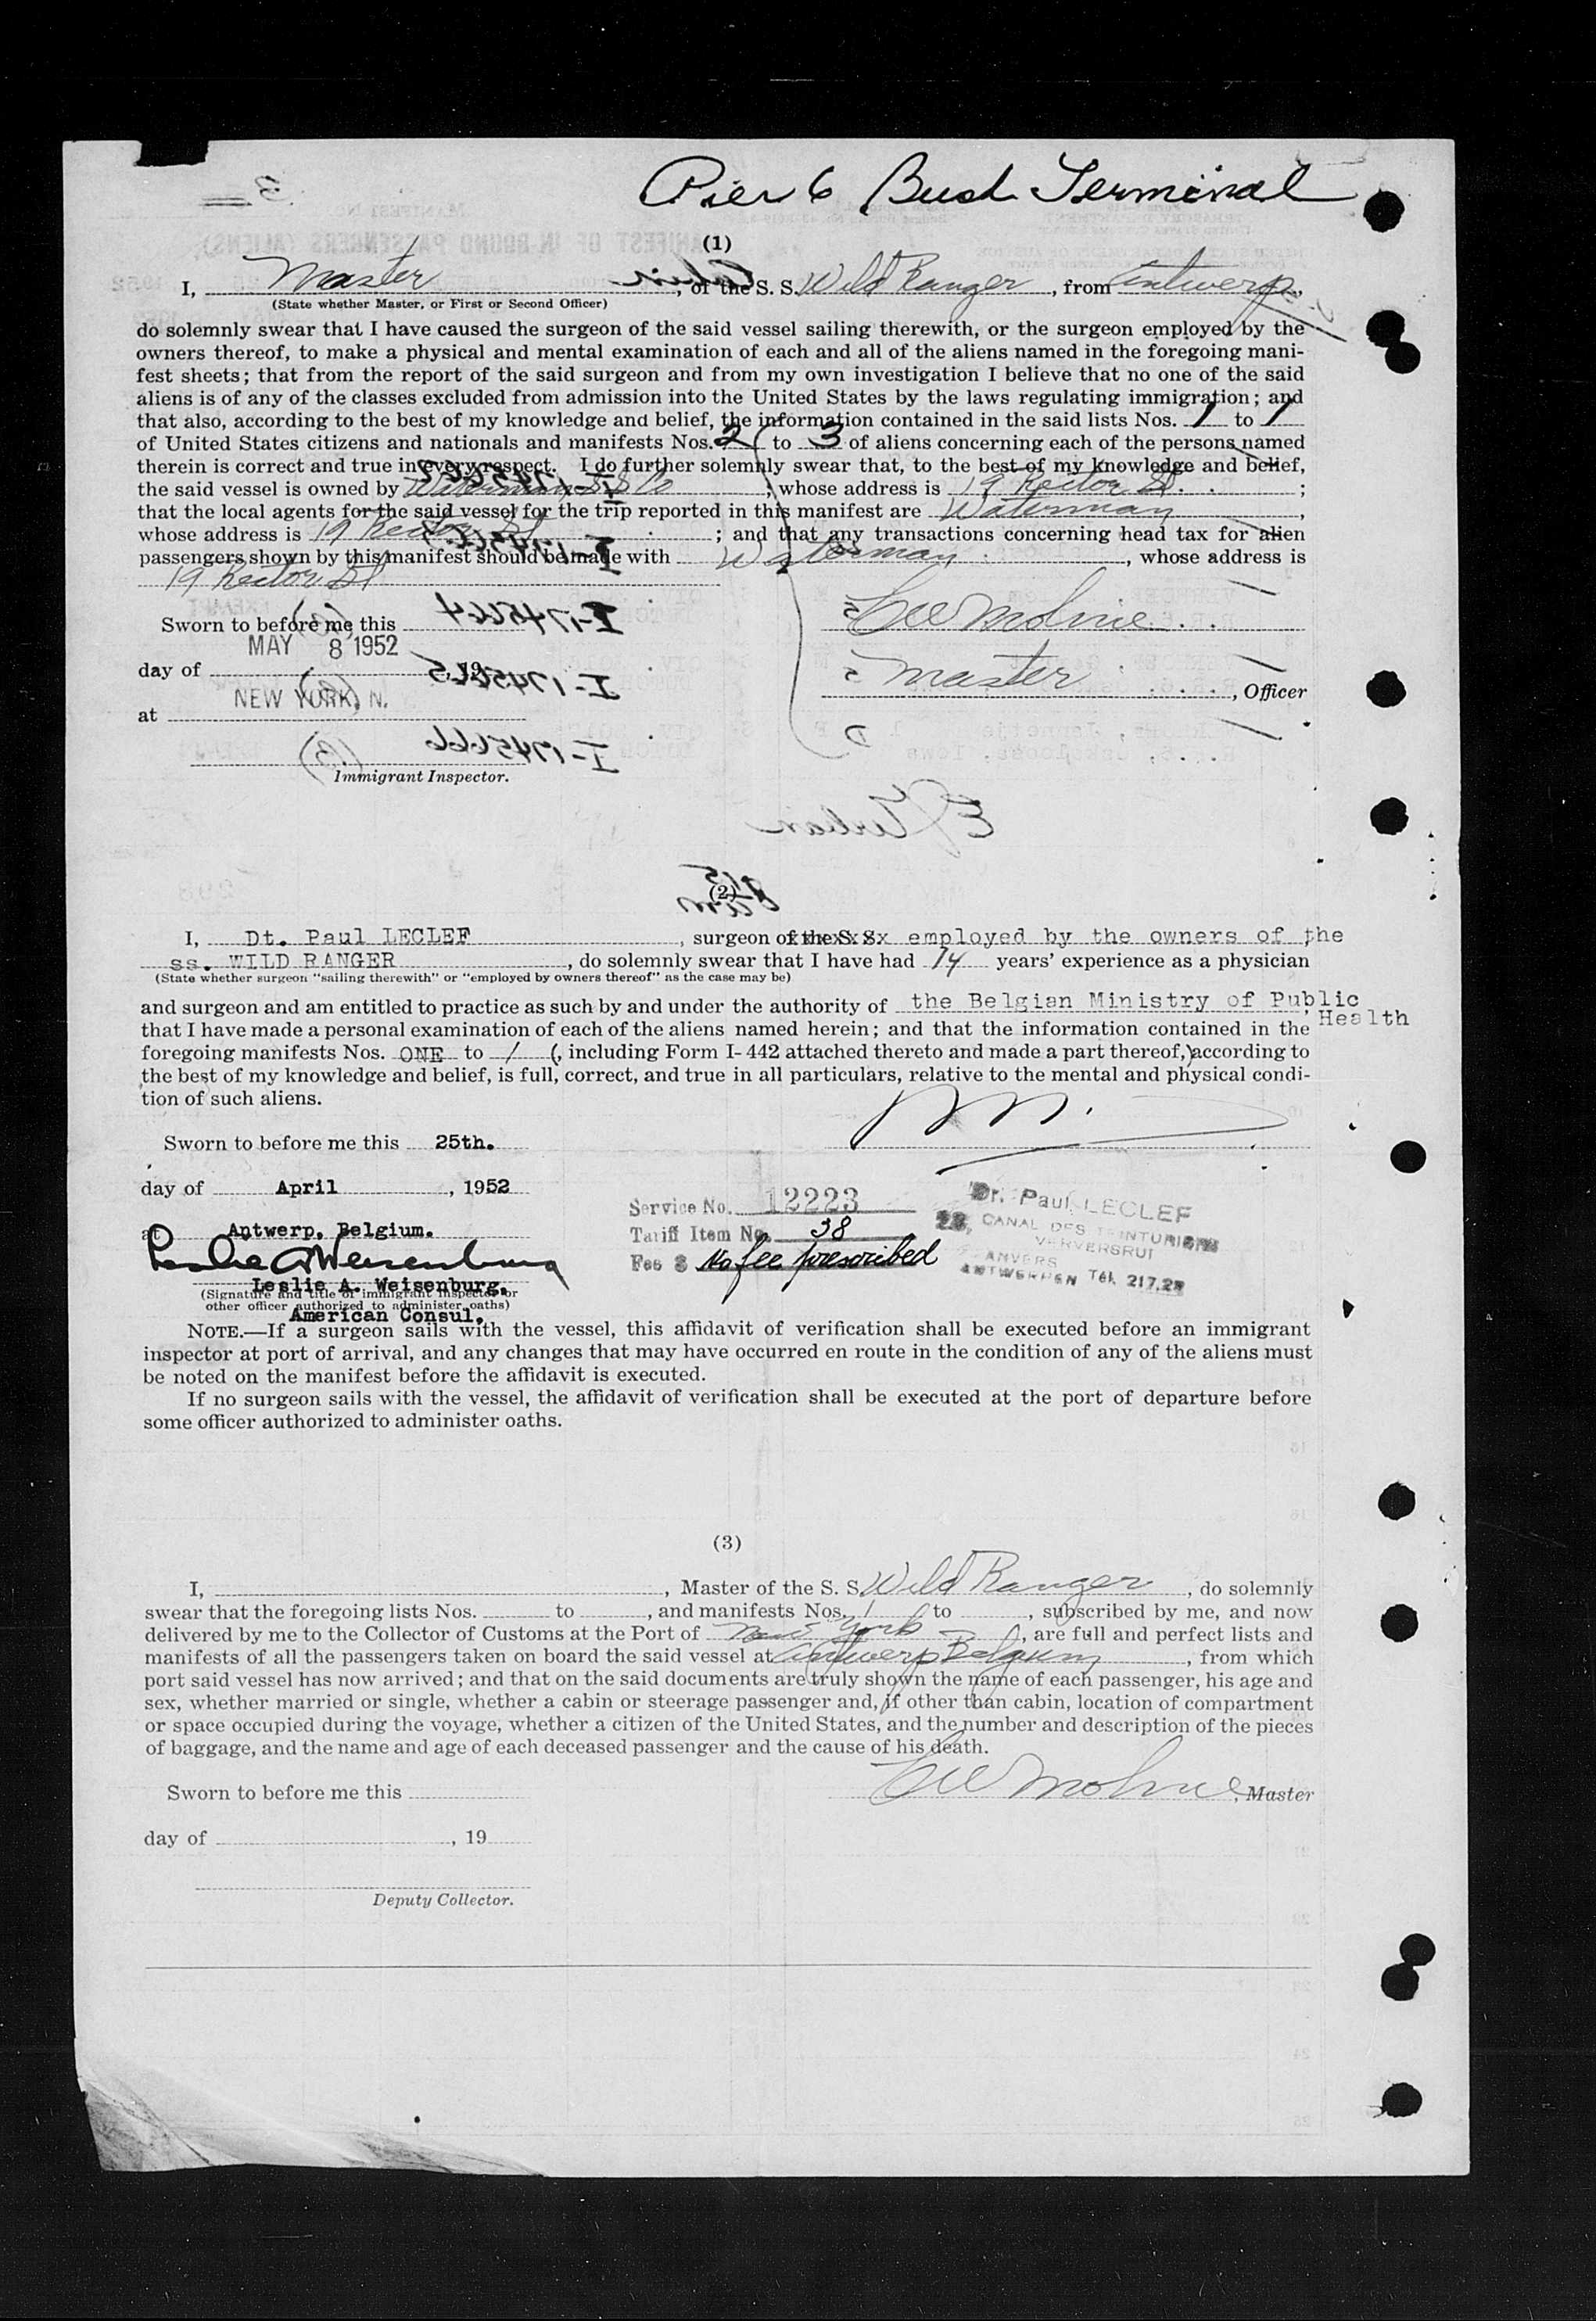 Pier 6 Bush Terminal
(1)
I, Master, of the S. S. Wild Ranger, from Antwerp,
(State whether Master, or First or Second Officer)
do solemnly swear that I have caused the surgeon of the said vessel sailing therewith, or the surgeon employed by the
owners thereof, to make a physical and mental examination of each and all of the aliens named in the foregoing mani-
fest sheets; that from the report of the said surgeon and from my own investigation I believe that no one of the said
aliens is of any of the classes excluded from admission into the United States by the laws regulating immigration; and
that also, according to the best of my knowledge and belief, the information contained in the said lists Nos. 1 to 1
of United States citizens and nationals and manifests Nos. 2 to 3 of aliens concerning each of the persons named
therein is correct and true in every respect. I do further solemnly swear that, to the best of my knowledge and belief,
the said vessel is owned by Waterman S S Co, whose address is 19 Rector St.;
that the local agents for the said vessel for the trip reported in this manifest are Waterman,
whose address is 19 Rector St; and that any transactions concerning head tax for alien
passengers shown by this manifest should be made with Waterman, whose address is
19 Rector St
Sworn to before me this
MAY 8 1952
day of
NEW YORK, N.
at
Master, Officer
Immigrant Inspector.
(2)
I, Dt. Paul LECLEF, surgeon of the S. S. employed by the owners of the
ss. WILD RANGER, do solemnly swear that I have had 14 years' experience as a physician
(State whether surgeon "sailing therewith" or "employed by owners thereof" as the case may be)
and surgeon and am entitled to practice as such by and under the authority of the Belgian Ministry of Public Health
that I have made a personal examination of each of the aliens named herein; and that the information contained in the
foregoing manifests Nos. ONE to / (, including Form I-442 attached thereto and made a part thereof,) according to
the best of my knowledge and belief, is full, correct, and true in all particulars, relative to the mental and physical condi-
tion of such aliens.
Sworn to before me this 25th.
day of April, 1952
at Antwerp, Belgium.
Leslie A Weisenburg
Leslie A. Weisenburg,
(Signature and title of immigrant inspector or
other officer authorized to administer oaths)
American Consul.
Service No. 12223
Tariff Item No. 38
Fee $ No fee prescribed
Dr. Paul LECLEF
28, CANAL DES TEINTURIERS
VERVERSRUI
ANVERS
ANTWERPEN Tél. 217.29
NOTE.—If a surgeon sails with the vessel, this affidavit of verification shall be executed before an immigrant
inspector at port of arrival, and any changes that may have occurred en route in the condition of any of the aliens must
be noted on the manifest before the affidavit is executed.
If no surgeon sails with the vessel, the affidavit of verification shall be executed at the port of departure before
some officer authorized to administer oaths.
(3)
I, , Master of the S. S. Wild Ranger, do solemnly
swear that the foregoing lists Nos. to , and manifests Nos. 1 to , subscribed by me, and now
delivered by me to the Collector of Customs at the Port of New York, are full and perfect lists and
manifests of all the passengers taken on board the said vessel at Antwerp Belgium, from which
port said vessel has now arrived; and that on the said documents are truly shown the name of each passenger, his age and
sex, whether married or single, whether a cabin or steerage passenger and, if other than cabin, location of compartment
or space occupied during the voyage, whether a citizen of the United States, and the number and description of the pieces
of baggage, and the name and age of each deceased passenger and the cause of his death.
Sworn to before me this
, Master
day of , 19
Deputy Collector.